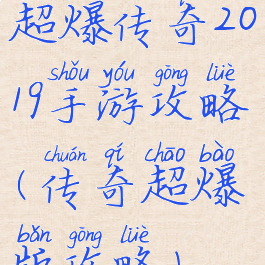 超爆传奇20
shǒu yóu gōng lüè
19手游攻略
chuán qí chāo bào
(传奇超爆
bǎn gōng lüè
版攻略)